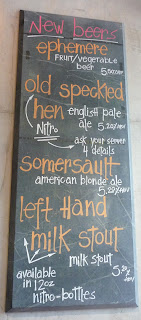 New beers
ephemere
FRUIT/VEGETABLE
beer 5.00
old speckled
hen english pale
ale 5.20/
Nitro
ask your server
4 details
somersault
american blonde ale
5.20/
left Hand
milk stout
milk stout
available
in 12oz
nitro-bottles